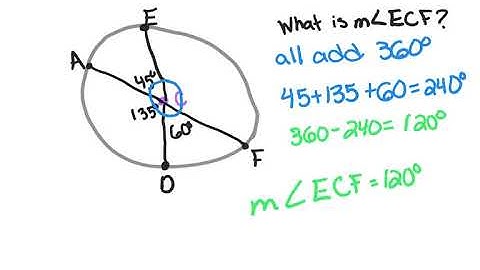 What is m∠ECF?
all add 360°
45+135+60=240°
360-240=120°
m∠ECF=120°
E
A
45°
C
135
60°
F
D